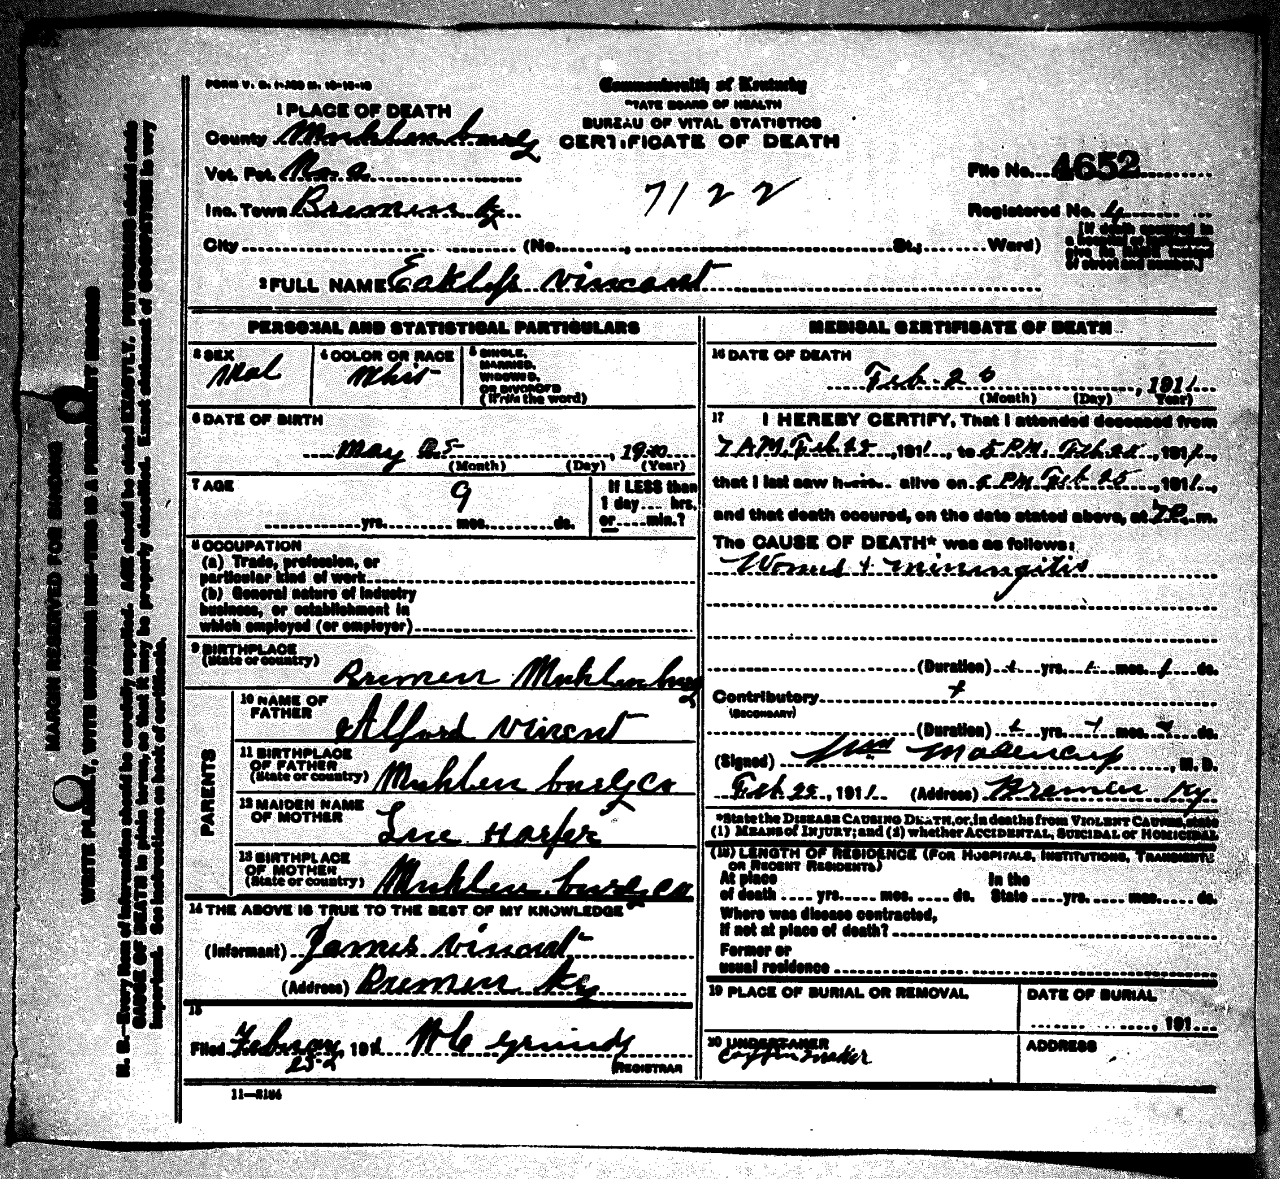 FORM V. S. 1-
Commonwealth of Kentucky
STATE BOARD OF HEALTH
BUREAU OF VITAL STATISTICS
CERTIFICATE OF DEATH
1 PLACE OF DEATH
County Muhlenburg
Vot. Pct. No. a
Inc. Town Bremen Ky
City (No. , St.; Ward)
7122
File No. 4652
Registered No. 4
[If death occurred in a hospital or institution, give its NAME instead of street and number.]
2 FULL NAME Vincent
PERSONAL AND STATISTICAL PARTICULARS
3 SEX Mal
4 COLOR OR RACE Whit
5 SINGLE, MARRIED, WIDOWED, OR DIVORCED (Write the word)
6 DATE OF BIRTH
May , 19
(Month) (Day) (Year)
7 AGE
9
yrs. mos. ds.
If LESS than 1 day hrs. or min.?
8 OCCUPATION
(a) Trade, profession, or particular kind of work
(b) General nature of industry business, or establishment in which employed (or employer)
9 BIRTHPLACE (State or country) Bremen Muhlenburg
PARENTS
10 NAME OF FATHER Alford Vincent
11 BIRTHPLACE OF FATHER (State or country) Muhlenburg Co
12 MAIDEN NAME OF MOTHER Harper
13 BIRTHPLACE OF MOTHER (State or country) Muhlenburg Co
14 THE ABOVE IS TRUE TO THE BEST OF MY KNOWLEDGE
(Informant) James Vincent
(Address) Bremen Ky
15
Filed February , 191 H C Grundy
REGISTRAR
11—3184
MEDICAL CERTIFICATE OF DEATH
16 DATE OF DEATH
Feb. 2 , 1911
(Month) (Day) (Year)
17 I HEREBY CERTIFY, That I attended deceased from
7 AM. Feb , 1911, to 5 PM. Feb , 1911,
that I last saw h alive on PM Feb , 1911,
and that death occured, on the date stated above, at m.
The CAUSE OF DEATH* was as follows:
Worms + miningitis
(Duration) yrs. mos. ds.
Contributory
(SECONDARY)
(Duration) yrs. mos. ds.
(Signed) , M. D.
Feb. , 1911 (Address) Bremen Ky
*State the DISEASE CAUSING DEATH, or, in deaths from VIOLENT CAUSES, state
(1) MEANS of INJURY; and (2) whether ACCIDENTAL, SUICIDAL or HOMICIDAL
(18) LENGTH OF RESIDENCE (FOR HOSPITALS, INSTITUTIONS, TRANSIENTS OR RECENT RESIDENTS)
At place of death yrs. mos. ds. In the State yrs. mos. ds.
Where was disease contracted,
If not at place of death?
Former or
usual residence
19 PLACE OF BURIAL OR REMOVAL
DATE OF BURIAL
, 191
20 UNDERTAKER
ADDRESS
MARGIN RESERVED FOR BINDING
WRITE PLAINLY, WITH UNFADING INK—THIS IS A PERMANENT RECORD
N. B.—Every item of information should be carefully supplied. AGE should be stated EXACTLY. PHYSICIANS should state
CAUSE OF DEATH in plain terms, so that it may be properly classified. Exact statement of OCCUPATION is very
important. See instructions on back of certificate.